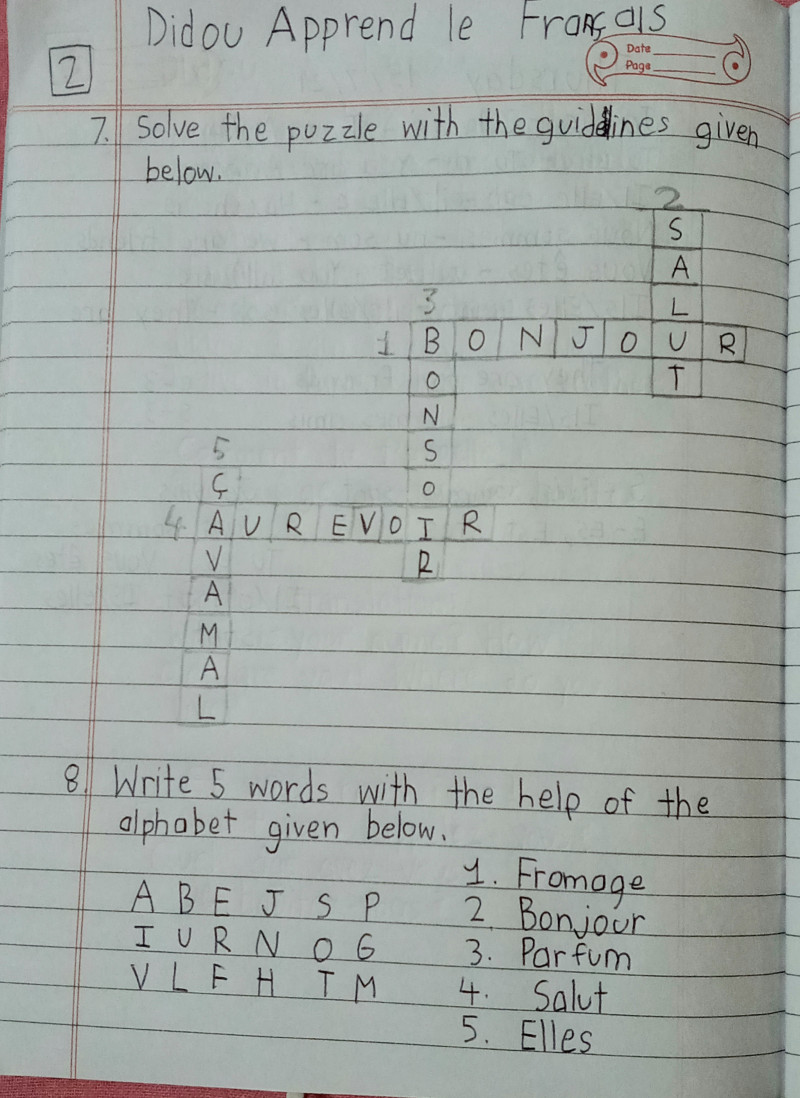 Didou Apprend le Français
2
Date
Page
7. Solve the puzzle with the guidelines given
below.
2
S
A
3
L
1 B O N J O U R
O T
N
5 S
Ç O
4. A U R E V O I R
V R
A
M
A
L
8. Write 5 words with the help of the
alphabet given below.
1. Fromage
A B E J S P
2. Bonjour
I U R N O G
3. Parfum
V L F H T M
4. Salut
5. Elles